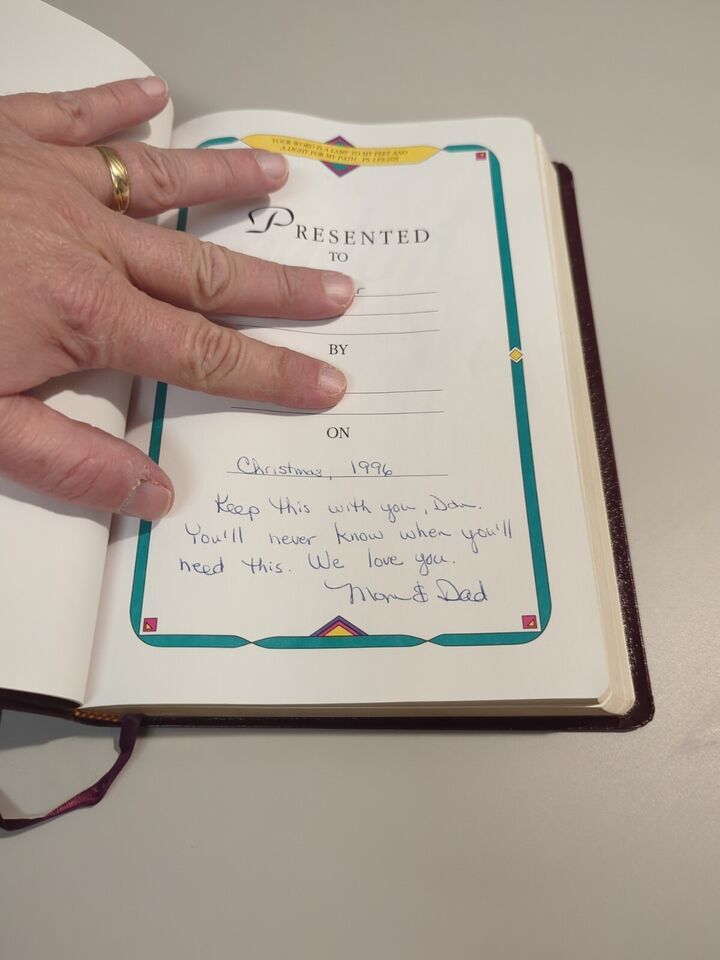 YOUR WORD IS A LAMP TO MY FEET AND
A LIGHT FOR MY PATH PS 119:105
PRESENTED
TO
BY
ON
Christmas, 1996
Keep this with you, Dan.
You'll never know when you'll
need this. We love you.
Mom & Dad